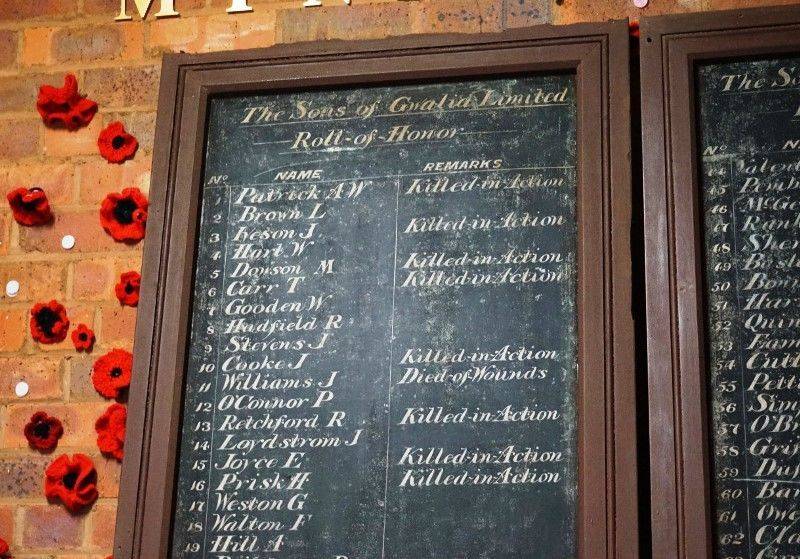 The Sons of Gwalia Limited
Roll-of-Honor
No NAME REMARKS
1 Patrick A W Killed-in-Action
2 Brown L
3 Iveson J Killed-in-Action
4 Hart W
5 Dowson M Killed-in-Action
6 Carr T Killed-in-Action
7 Gooden W
8 Hadfield R
9 Stevens J
10 Cooke J Killed-in-Action
11 Williams J Died-of-Wounds
12 O'Connor P
13 Retchford R Killed-in-Action
14 Loydstrom J
15 Joyce E Killed-in-Action
16 Prisk H Killed-in-Action
17 Weston G
18 Walton F
19 Hill A
The So
No
44
45 Pemb
46 McGe
47
48 Sher
49
50
51 Har
52 Quin
53
54 Cutt
55 Pett
56
57 O'B
58
59
60 Bar
61 Owe
62 Cla